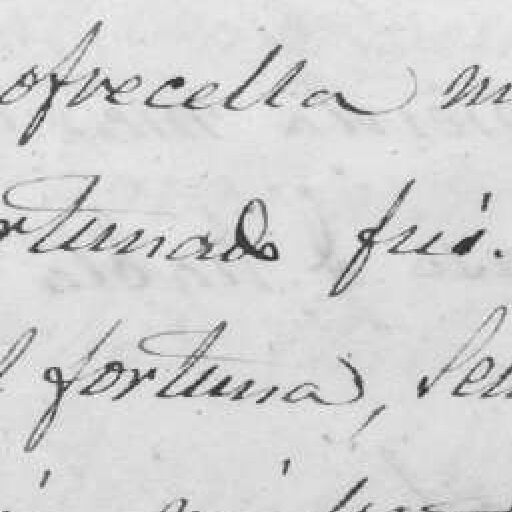 ofrecella m
rtunado fui.
fortuna, Sen